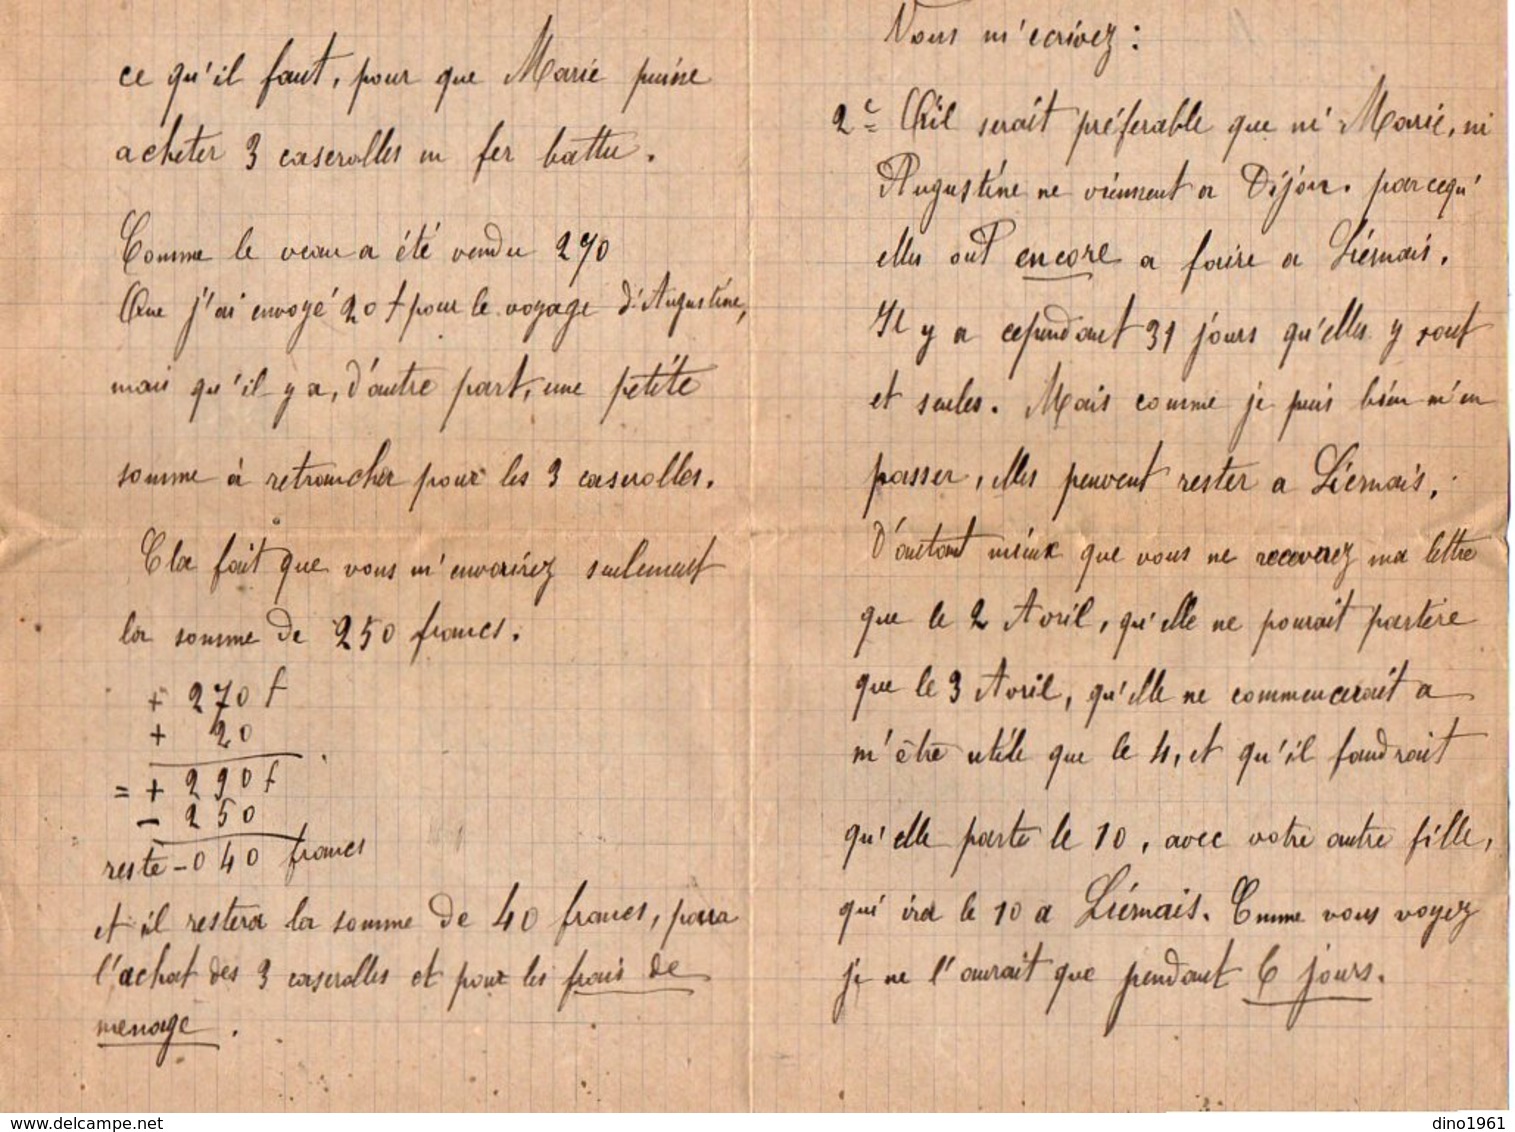 ce qu'il faut, pour que Marie puisse
acheter 3 casserolles en fer battu.
Comme le veau a été vendu 270
Que j'ai envoyé 20 f pour le voyage d'Augustine,
mais qu'il y a, d'autre part, une petite
somme à retrancher pour les 3 casserolles.
Cela fait que vous m'enverriez seulement
la somme de 250 francs.
+ 270 f
+ 20
= + 290 f
- 250
reste - 040 francs
et il restera la somme de 40 francs, pour
l'achat des 3 casserolles et pour les frais de
menage.
Vous m'écrivez :
2e Qu'il serait préferable que ni Marie, ni
Augustine ne viennent a Dijon. parcequ'
elles ont encore a faire a Liernais.
Il y a cependant 31 jours qu'elles y sont
et seules. Mais comme je puis bien m'en
passer, elles peuvent rester a Liernais,
d'autant mieux que vous ne receverez ma lettre
que le 2 Avril, qu'elle ne pourrait partire
que le 3 Avril, qu'elle ne commencerait a
m'être utile que le 4, et qu'il faudrait
qu'elle parte le 10, avec votre autre fille,
qui ira le 10 a Liernais. Comme vous voyez
je ne l'aurait que pendant 6 jours.
delcampe.net
dino1961